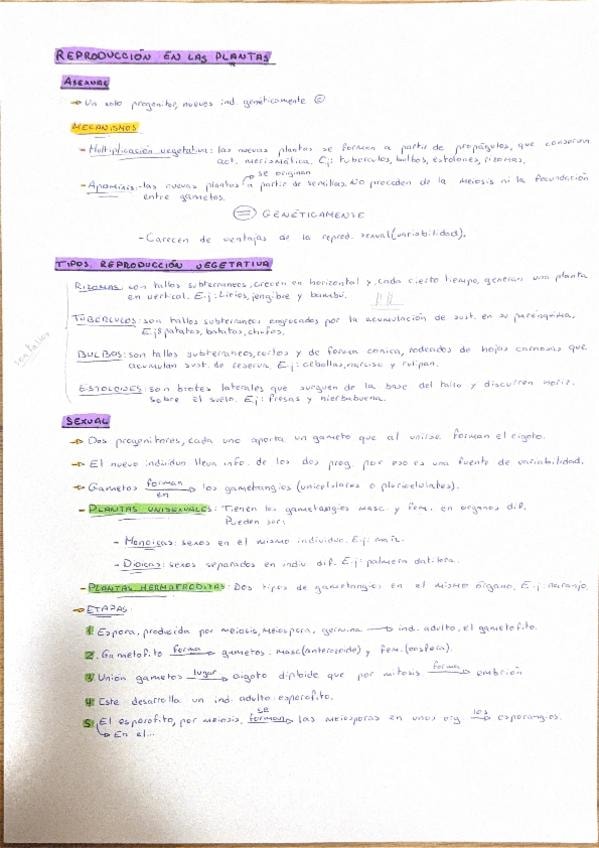 REPRODUCCIÓN EN LAS PLANTAS
ASEXUAL
→ Un solo progenitor, nuevos ind. genéticamente =
MECANISMOS
- Multiplicación vegetativa: las nuevas plantas se forman a partir de propágulos, que conservan
act. merismática. Ej: tubérculos, bulbos, estolones, rizomas.
se originan
- Apomixis: las nuevas plantas a partir de semillas. No proceden de la meiosis ni la fecundación
entre gametos.
= GENÉTICAMENTE
- Carecen de ventajas de la reprod. sexual (variabilidad).
TIPOS REPRODUCCIÓN VEGETATIVA
RIZOMAS: son tallos subterraneos, crecen en horizontal y, cada cierto tiempo, generan una planta
en vertical. Ej: Lirios, jengibre y bambú.
TUBÉRCULOS: son tallos subterraneos engrosados por la acumulación de sust. en su parénquima.
Ej: patatas, batatas, chufas.
son tallos
BULBOS: son tallos subterraneos, cortos y de forma conica, rodeados de hojas carnosas que
acumulan sust. de reserva. Ej: cebollas, narciso y tulipan.
ESTOLONES: son brotes laterales que surguen de la base del tallo y discurren horiz.
sobre el suelo. Ej: fresas y hierbabuena.
SEXUAL
→ Dos progenitores, cada uno aporta un gameto que al unirse forman el cigoto.
→ El nuevo individuo lleva info. de los dos prog. por eso es una fuente de variabilidad.
→ Gametos forman en los gametangios (unicelulares o pluricelulares).
- PLANTAS UNISEXUALES: Tienen los gametangios masc. y fem. en organos dif.
Pueden ser:
- Monoicas: sexos en el mismo individuo. Ej: maíz.
- Dioicas: sexos separados en indiv dif. Ej: palmera datilera.
- PLANTAS HERMAFRODITAS: Dos tipos de gametangios en el mismo órgano. Ej: naranjo.
→ ETAPAS:
1. Espora, producida por meiosis, meiospora, germina → ind. adulto, el gametofito.
2. Gametofito forma → gametos: masc (anterozoide) y fem. (oosfera).
3. Unión gametos lugar → cigoto diploide que por mitosis forma → embrión
4. Este desarrolla un ind. adulto: esporofito.
5. El esporofito, por meiosis, se forman → las meiosporas en unos org. los → esporangios.
→ En el...